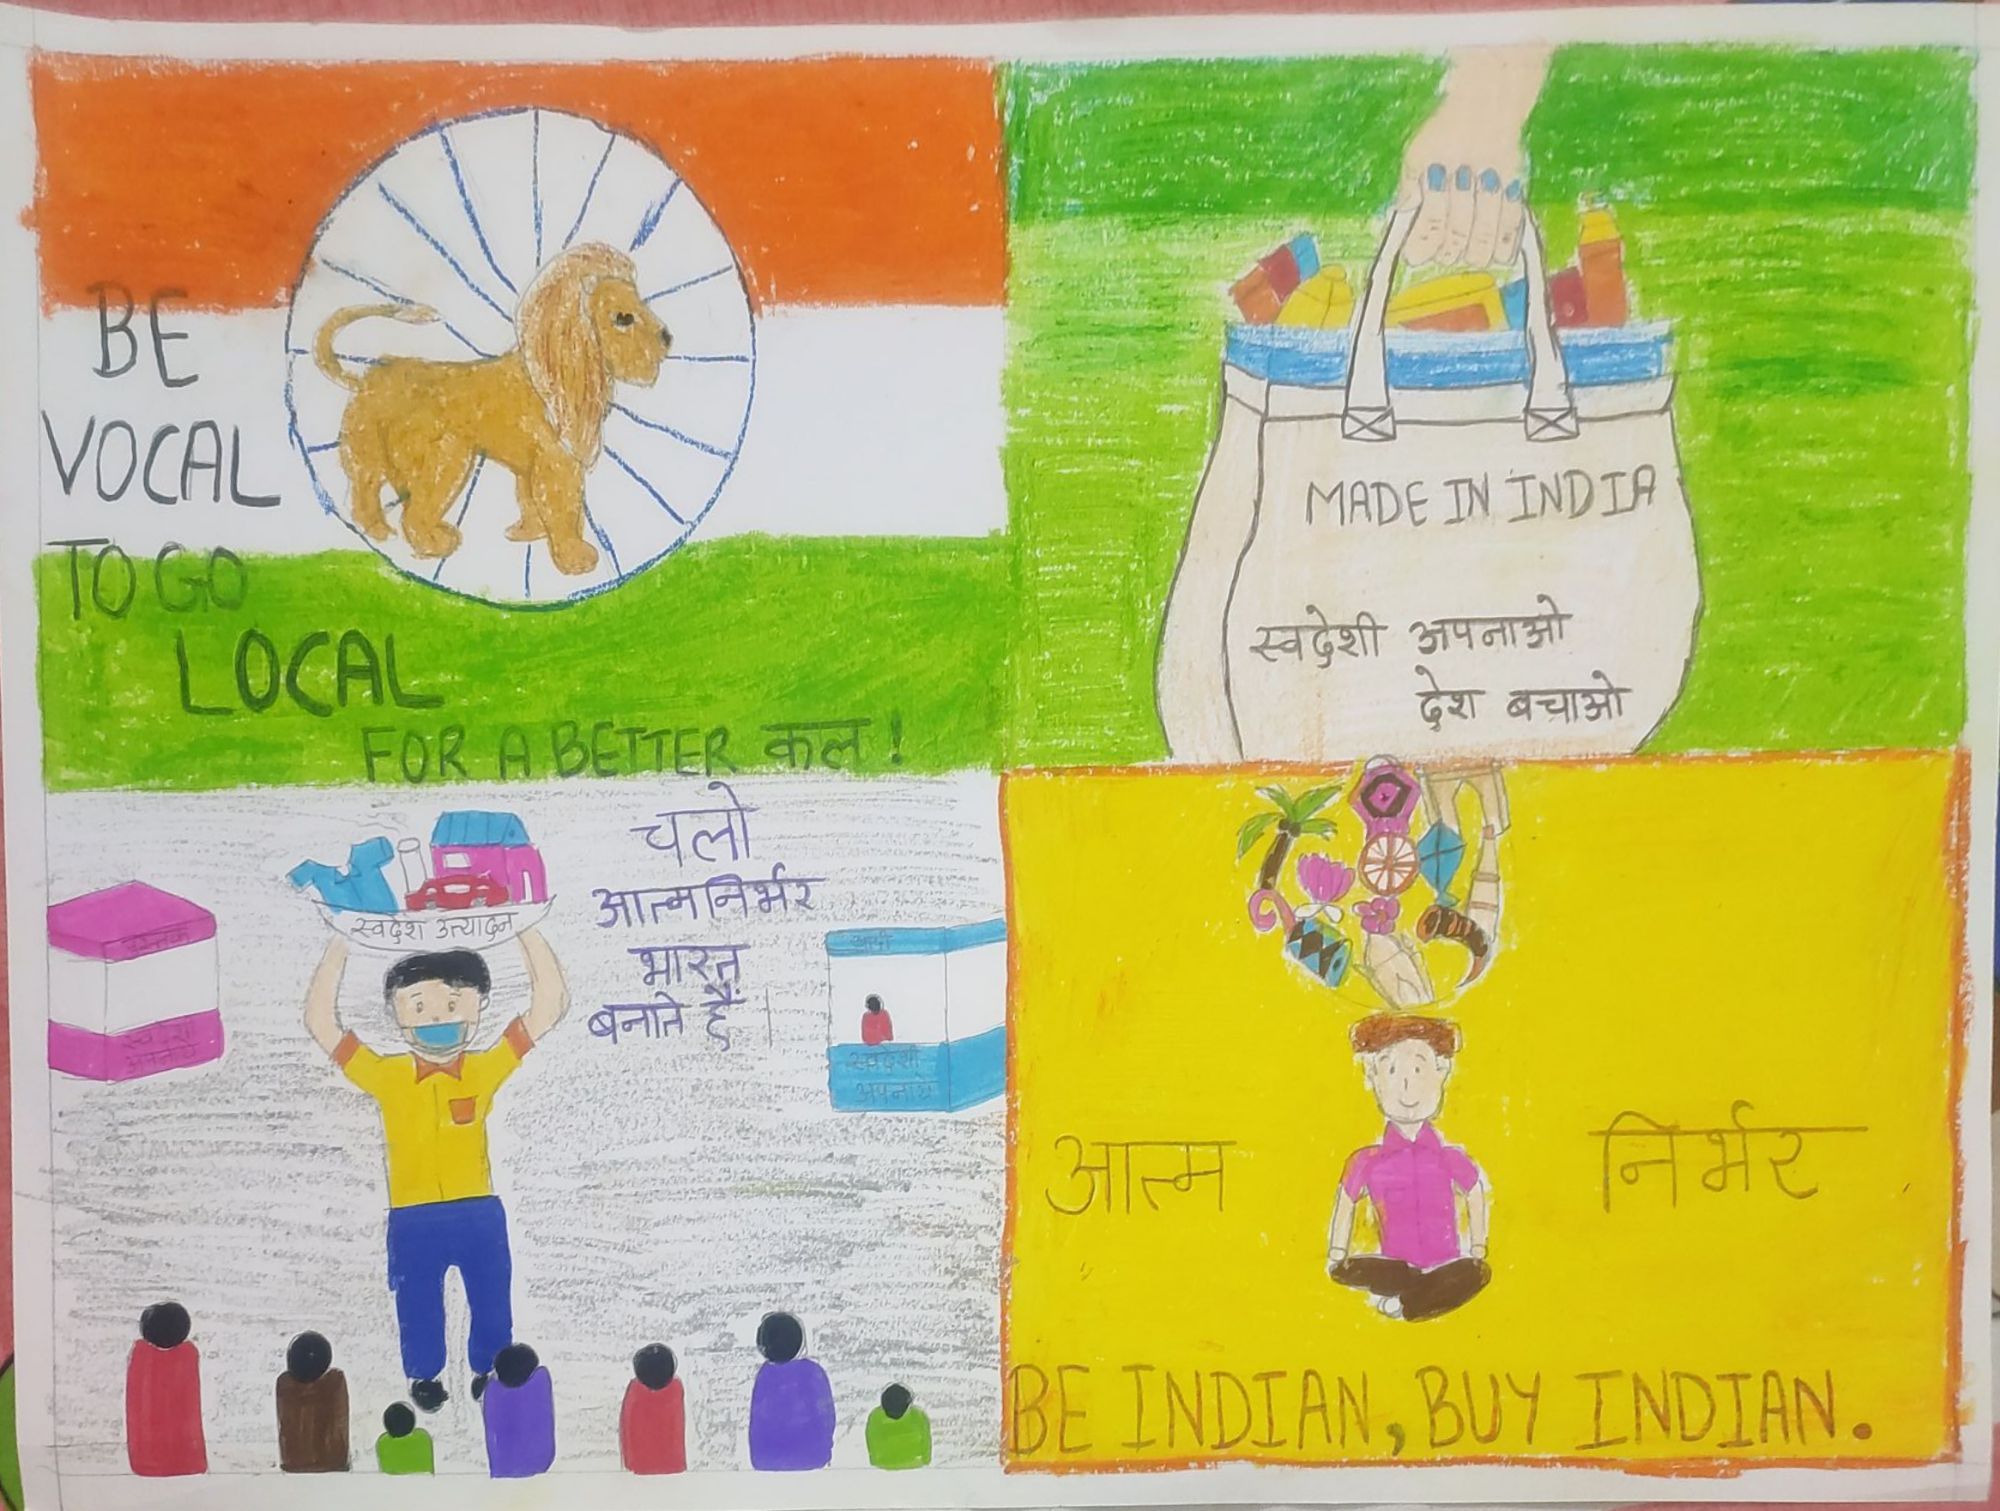 BE
VOCAL
TO GO
LOCAL
FOR A BETTER कल!
MADE IN INDIA
स्वदेशी अपनाओ
देश बचाओ
चलो
आत्मनिर्भर
भारत
बनाते हैं।
स्वदेश उत्पादन
पुस्तक
स्वदेशी
अपनाये
स्वदेशी
अपनाये
आत्म निर्भर
BE INDIAN, BUY INDIAN.